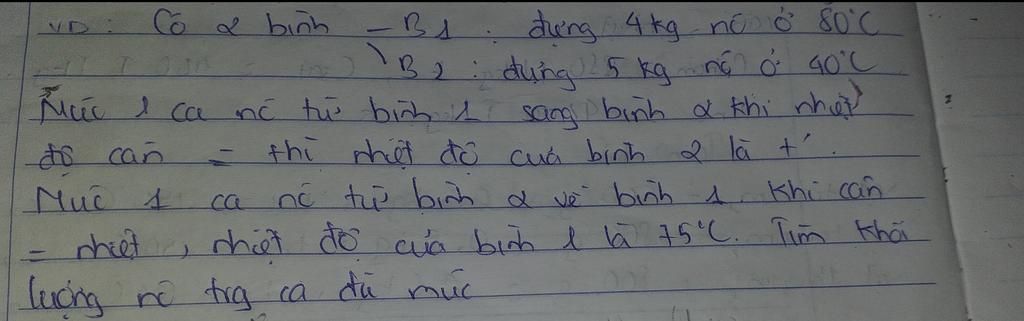 VD: Có 2 bình – B1: đựng 4kg nc ở 80°C
B2: đựng 5 kg nc ở 40°C
Múc 1 ca nc từ bình 1 sang bình 2 khi nhiệt
độ cân = thì nhiệt độ của bình 2 là t'.
Múc 1 ca nc từ bình 2 về bình 1. Khi cân
= nhiệt, nhiệt độ của bình 1 là 75°C. Tìm khối
lượng nc trg ca đã múc